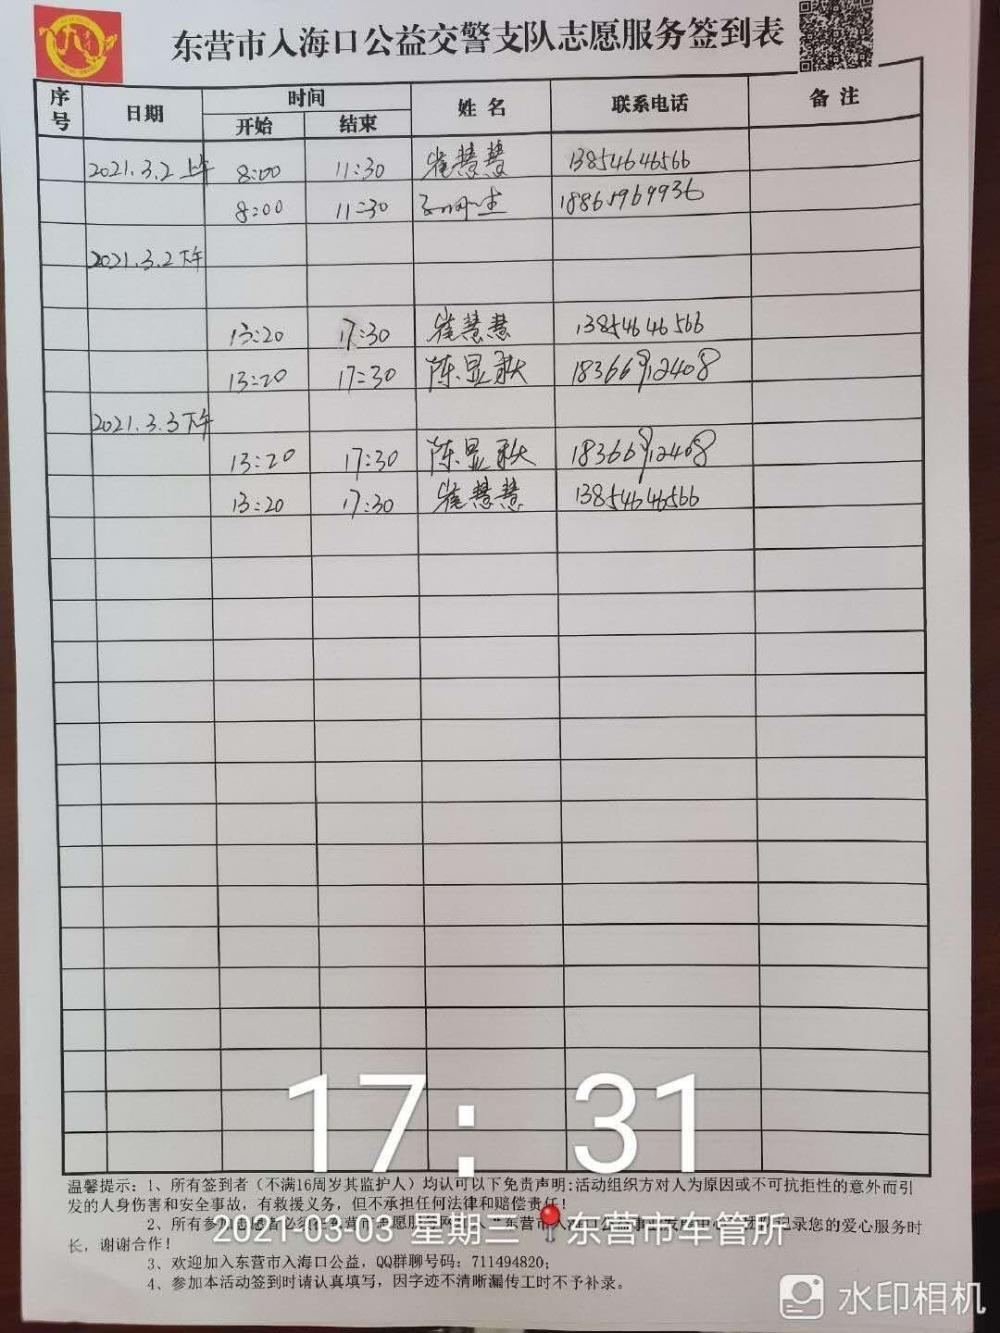 东营市入海口公益交警支队志愿服务签到表
序号 日期 时间 姓名 联系电话 备注
开始 结束
2021.3.2上午 8:00 11:30 崔慧慧 13854646566
8:00 11:30 18861969936
2021.3.2下午
13:20 17:30 崔慧慧 13854646566
13:20 17:30 陈显秋 18366912408
2021.3.3下午
13:20 17:30 陈显秋 18366912408
13:20 17:30 崔慧慧 13854646566
17:31
温馨提示：1、所有签到者（不满16周岁其监护人）均认可以下免责声明:活动组织方对人为原因或不可抗拒性的意外而引
发的人身伤害和安全事故，有救援义务，但不承担任何法律和赔偿责任！
2、所有参 记录您的爱心服务时
2021-03-03 星期三 东营市车管所
长，谢谢合作！
3、欢迎加入东营市入海口公益，QQ群聊号码：711494820；
4、参加本活动签到时请认真填写，因字迹不清晰漏传工时不予补录。
水印相机